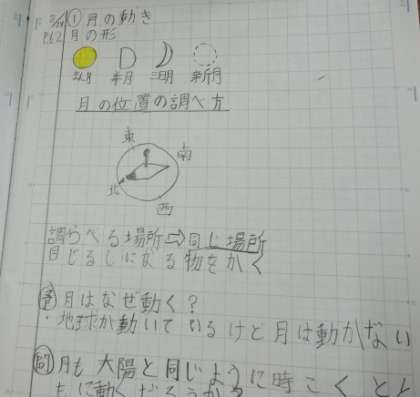 ①月の動き
P.62 月の形
満月 半月 三日月 新月
月の位置の調べ方
東
南
北
西
調らべる場所⇒同じ場所
目じるしになる物をかく
予 月はなぜ動く?
・地球が動いているけど月は動かない
問 月も太陽と同じように時こくとと
もに動くだろうか?